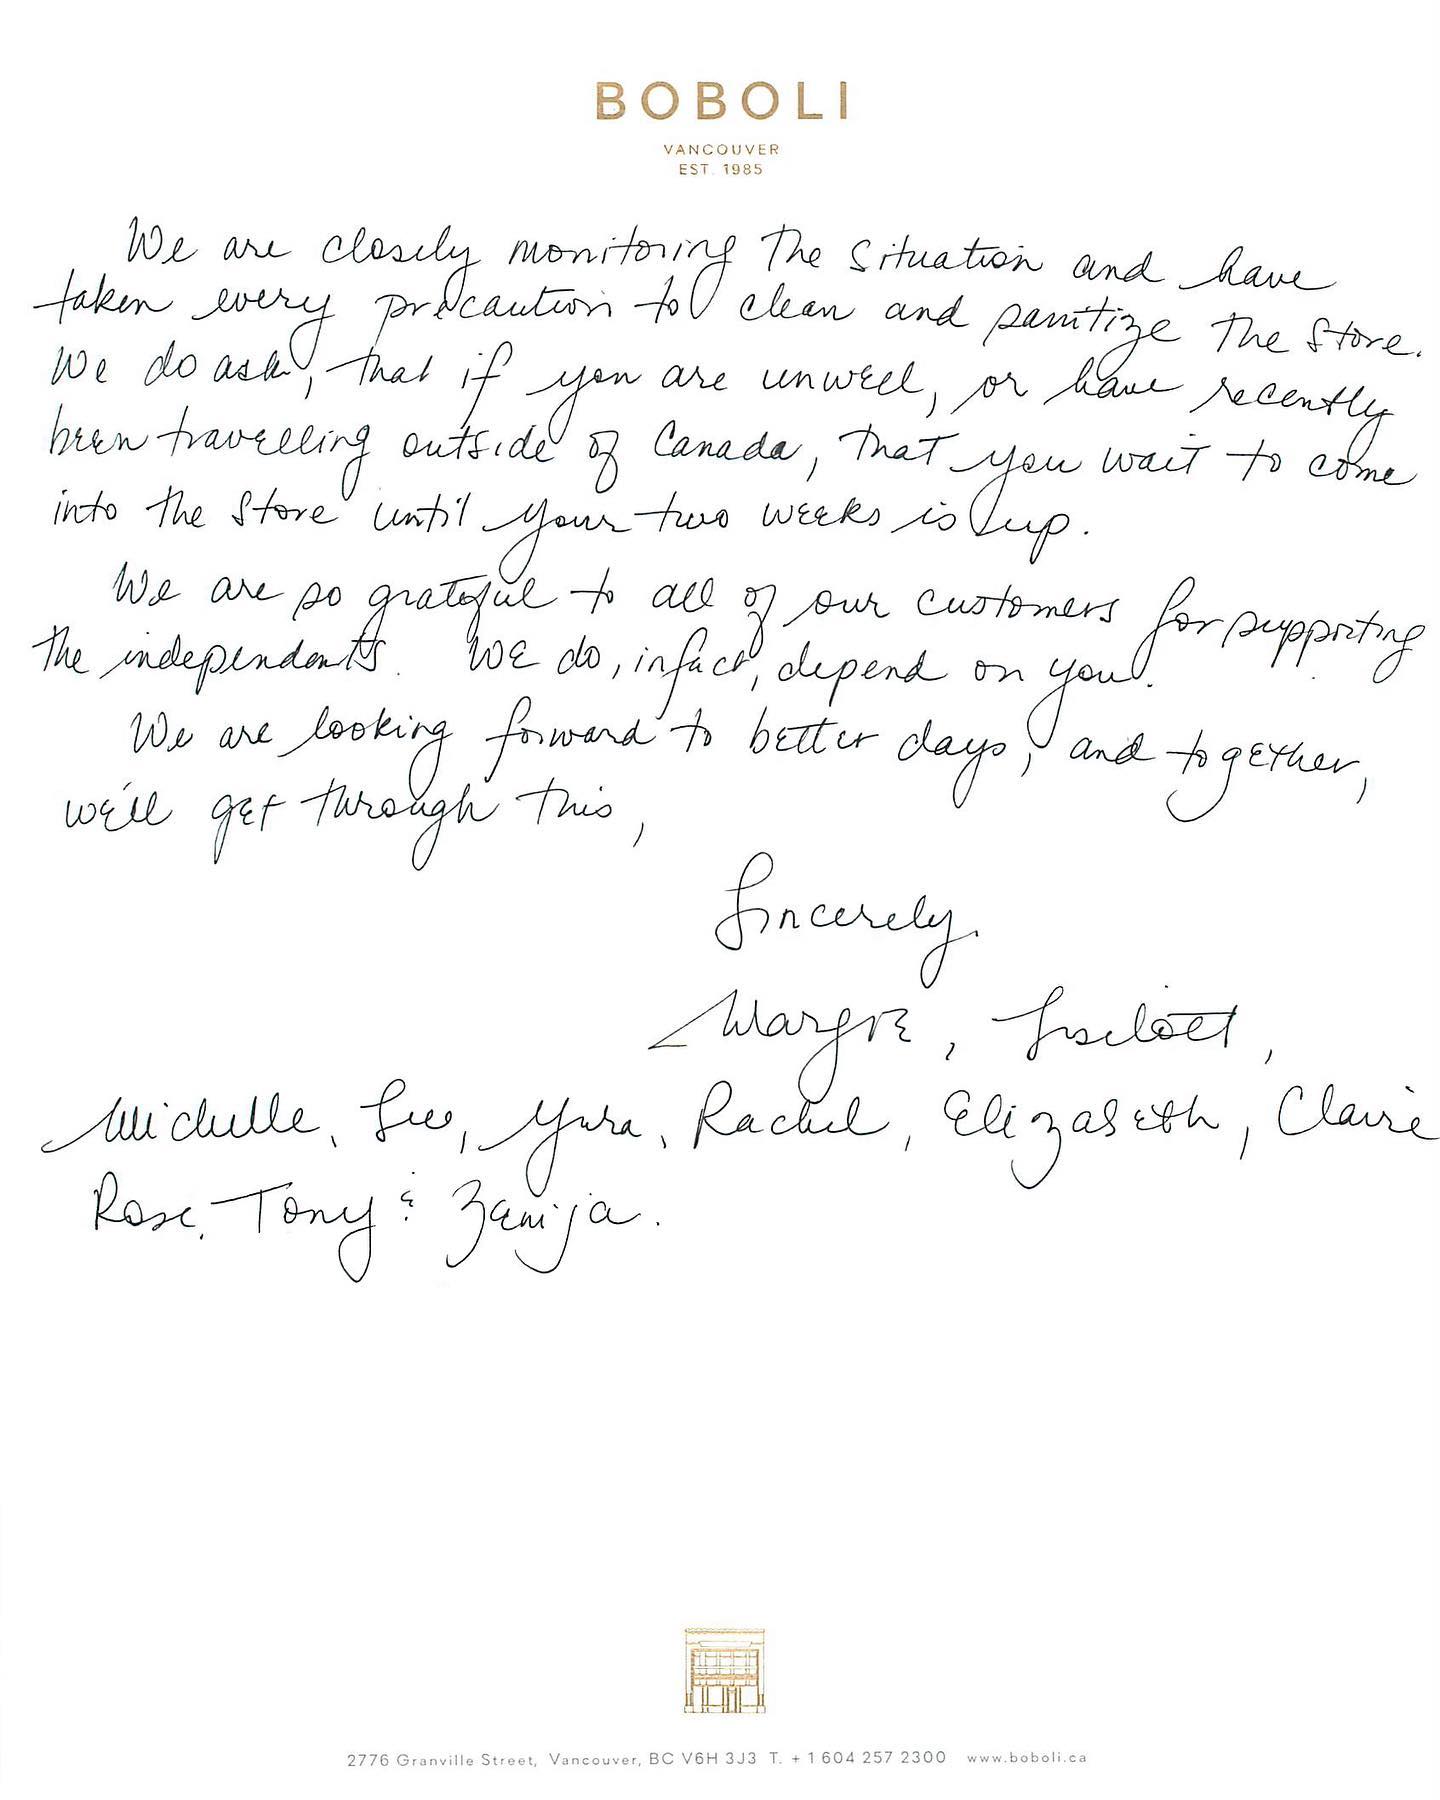 BOBOLI
VANCOUVER
EST. 1985
We are closely monitoring the situation and have
taken every precaution to clean and sanitize the store.
We do ask, that if you are unwell, or have recently
been travelling outside of Canada, that you wait to come
into the store until your two weeks is up.
We are so grateful to all of our customers for supporting
the independents. We do, infact, depend on you.
We are looking forward to better days, and together,
we'll get through this,
Sincerely,
Margot, Liselott,
Michelle, Lee, Yura, Rachel, Elizabeth, Claire
Rose, Tony & Zenija.
2776 Granville Street, Vancouver, BC V6H 3J3 T. +1 604 257 2300 www.boboli.ca